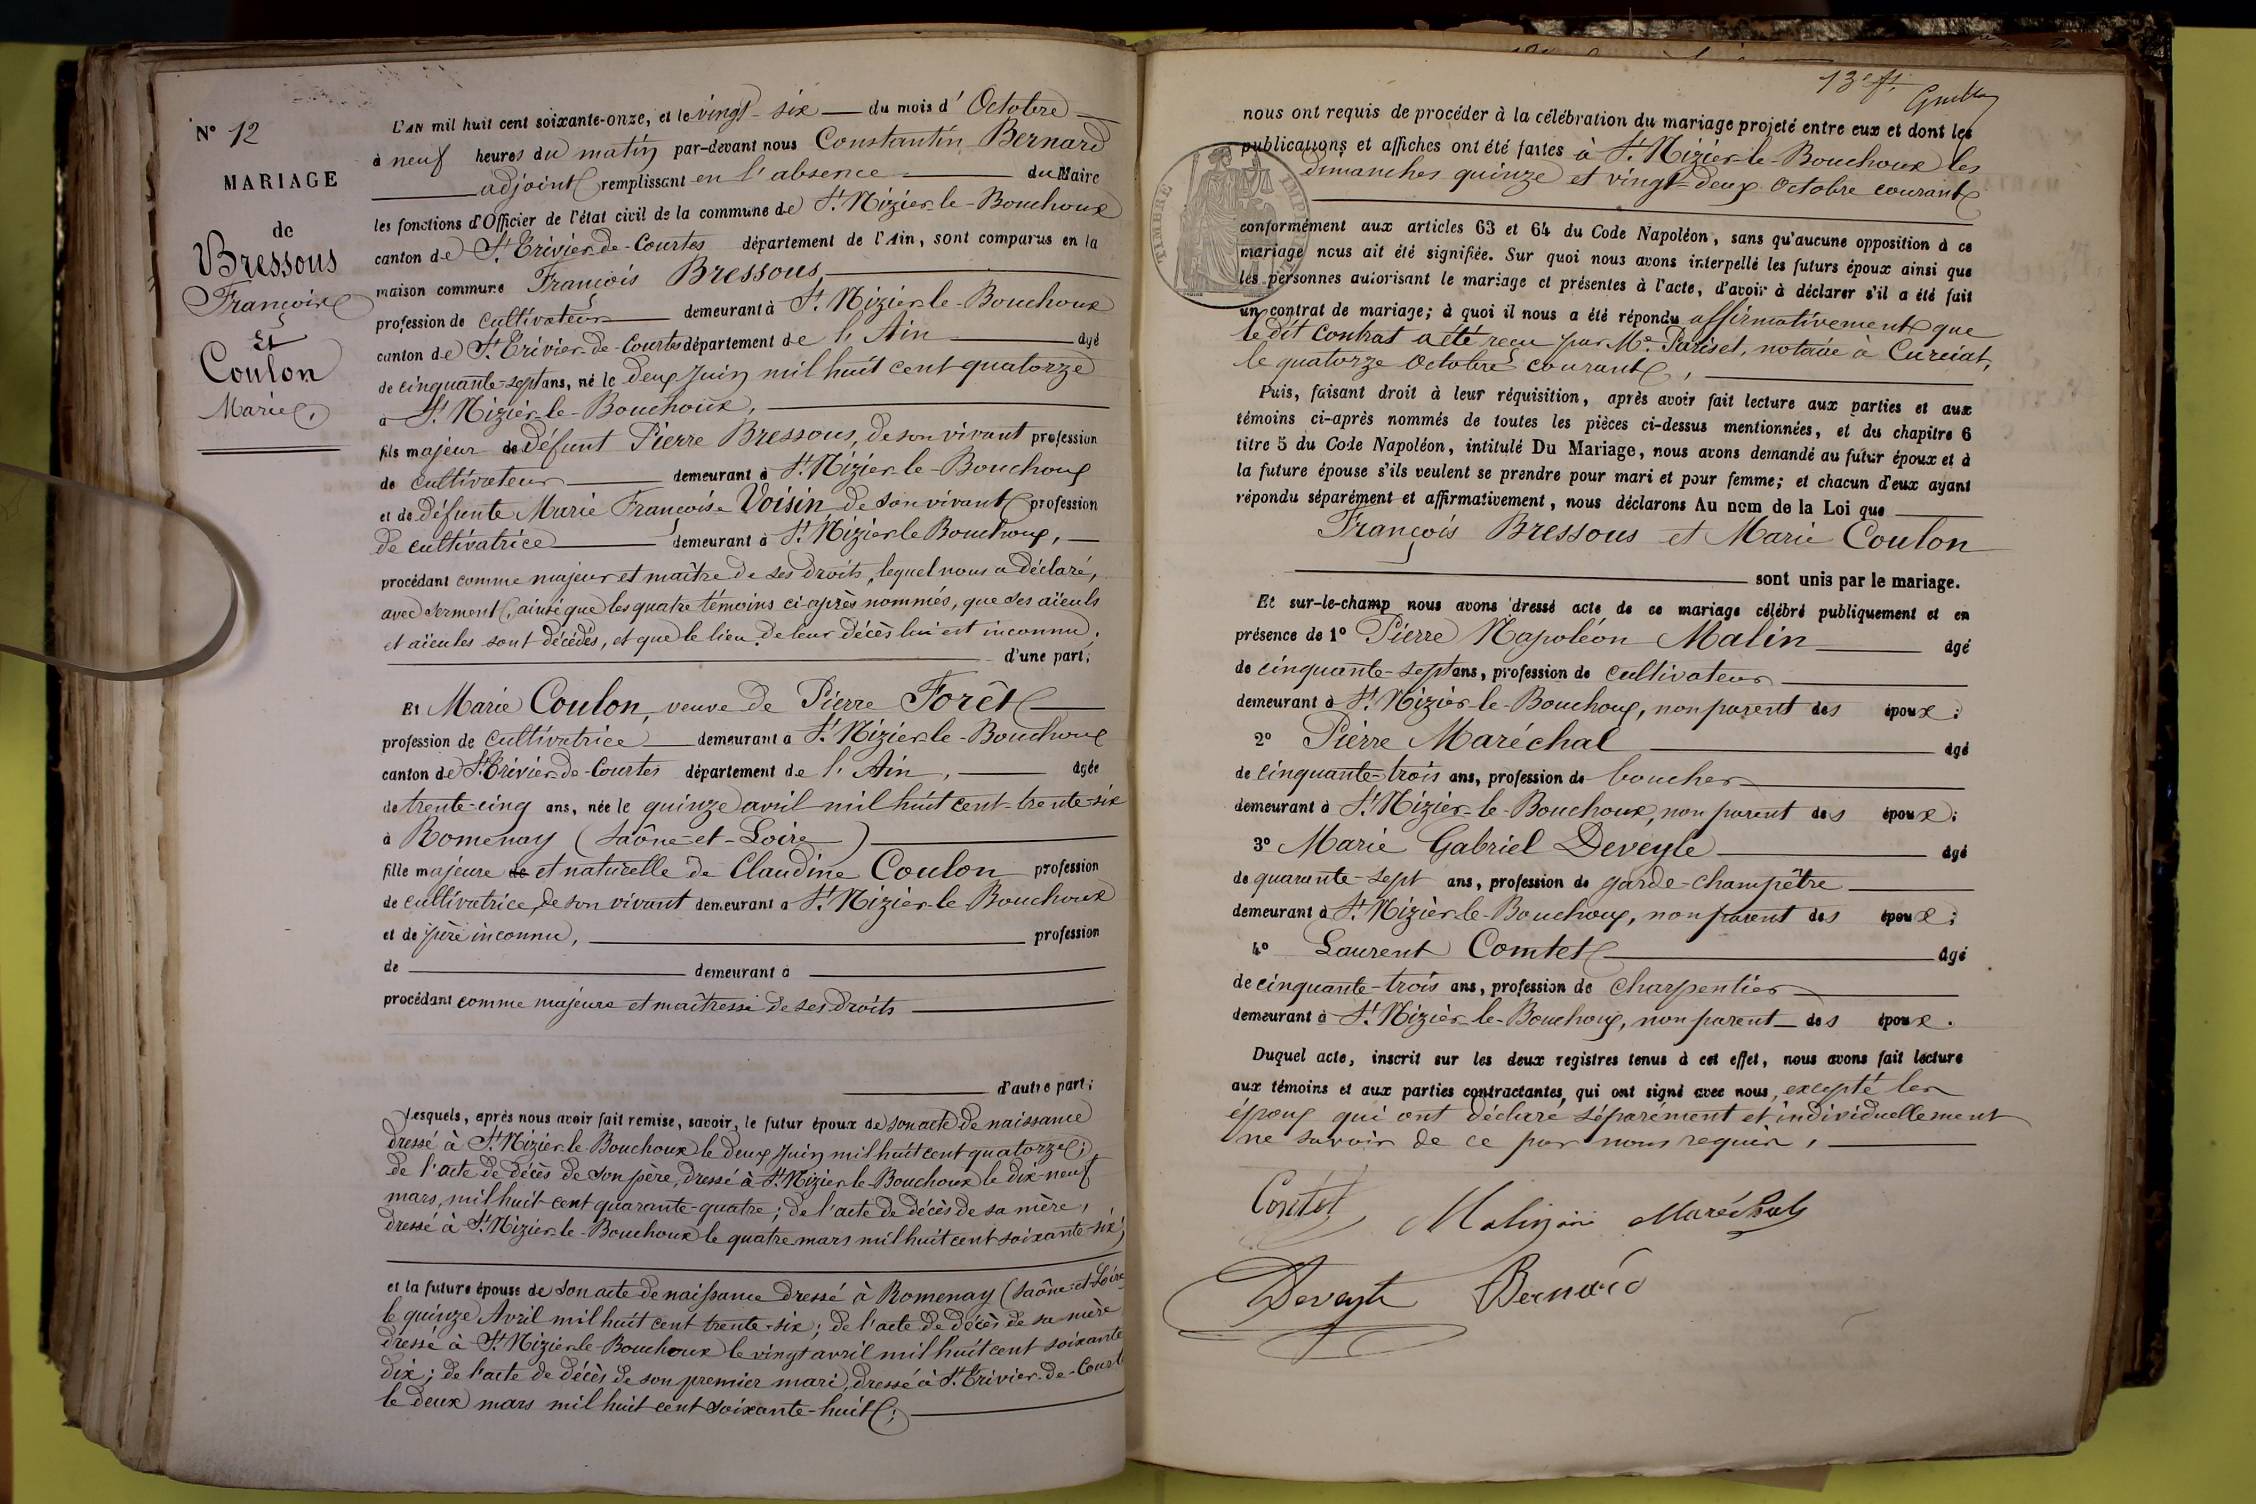 N° 12
MARIAGE
de
Bressous
François
Et
Coulon
Marie,
L'AN mil huit cent soixante-onze, et le vingt-six du mois d'Octobre
à neuf heures du matin par-devant nous Constantin Bernard
adjoint remplissant en l'absence du Maire
les fonctions d'Officier de l'état civil de la commune de St Nizier-le-Bouchoux
canton de St Trivier-de-Courtes département de l'Ain, sont comparus en la
maison commune François Bressous,
profession de cultivateur demeurant à St Nizier-le-Bouchoux
canton de St Trivier-de-Courtes département de l'Ain âgé
de cinquante-sept ans, né le deux Juin mil huit cent quatorze
à St Nizier-le-Bouchoux,
fils majeur de défunt Pierre Bressous, de son vivant profession
de cultivateur demeurant à St Nizier-le-Bouchoux
et de défunte Marie Françoise Voisin de son vivant profession
de cultivatrice demeurant à St Nizier le Bouchoux,
procédant comme majeur et maître de ses droits, lequel nous a déclaré,
avec serment, ainsi que les quatre témoins ci-après nommés, que ses aïeuls
et aïeules sont décédés, et que le lieu de leur décès lui est inconnu.
d'une part;
Et Marie Coulon, veuve de Pierre Forêt
profession de cultivatrice demeurant à St Nizier-le-Bouchoux
canton de St Trivier-de-Courtes département de l'Ain, âgée
de trente-cinq ans, née le quinze avril mil huit cent trente-six
à Romenay (Saône-et-Loire)
fille majeure de et naturelle de Claudine Coulon profession
de cultivatrice, de son vivant demeurant à St Nizier-le-Bouchoux
et de père inconnu, profession
de demeurant à
procédant comme majeure et maîtresse de ses droits
d'autre part;
Lesquels, après nous avoir fait remise, savoir, le futur époux de son acte de naissance
dressé à St Nizier-le-Bouchoux le deux Juin mil huit cent quatorze;
de l'acte de décès de son père, dressé à St Nizier-le-Bouchoux le dix-neuf
mars, mil huit cent quarante-quatre; de l'acte de décès de sa mère,
dressé à St Nizier-le-Bouchoux le quatre mars mil huit cent soixante-six;
et la future épouse de son acte de naissance dressé à Romenay (Saône-et-Loire
le quinze Avril mil huit cent trente-six; de l'acte de décès de sa mère
dressé à St Nizier-le-Bouchoux le vingt avril mil huit cent soixante
dix; de l'acte de décès de son premier mari, dressé à St Trivier-de-Courtes
le deux mars mil huit cent soixante-huit;
13e ft.
nous ont requis de procéder à la célébration du mariage projeté entre eux et dont les
publications et affiches ont été faites à St Nizier-le-Bouchoux les
dimanches quinze et vingt-deux Octobre courant
TIMBRE IMP
conformément aux articles 63 et 64 du Code Napoléon, sans qu'aucune opposition à ce
mariage nous ait été signifiée. Sur quoi nous avons interpellé les futurs époux ainsi que
les personnes autorisant le mariage et présentes à l'acte, d'avoir à déclarer s'il a été fait
un contrat de mariage; à quoi il nous a été répondu affirmativement que
le dit contrat a été reçu par Me Pariset, notaire à Curciat,
le quatorze Octobre courant,
Puis, faisant droit à leur réquisition, après avoir fait lecture aux parties et aux
témoins ci-après nommés de toutes les pièces ci-dessus mentionnées, et du chapitre 6
titre 5 du Code Napoléon, intitulé Du Mariage, nous avons demandé au futur époux et à
la future épouse s'ils veulent se prendre pour mari et pour femme; et chacun d'eux ayant
répondu séparément et affirmativement, nous déclarons Au nom de la Loi que
François Bressous et Marie Coulon
sont unis par le mariage.
Et sur-le-champ nous avons dressé acte de ce mariage célébré publiquement et en
présence de 1° Pierre Napoléon Malin âgé
de cinquante-sept ans, profession de cultivateur
demeurant à St Nizier-le-Bouchoux, non parent des époux;
2° Pierre Maréchal âgé
de cinquante-trois ans, profession de boucher
demeurant à St Nizier-le-Bouchoux, non parent des époux;
3° Marie Gabriel Deveyle âgé
de quarante-sept ans, profession de garde-champêtre
demeurant à St Nizier-le-Bouchoux, non parent des époux;
4° Laurent Comtet âgé
de cinquante-trois ans, profession de charpentier
demeurant à St Nizier-le-Bouchoux, non parent des époux.
Duquel acte, inscrit sur les deux registres tenus à cet effet, nous avons fait lecture
aux témoins et aux parties contractantes, qui ont signé avec nous, excepté les
époux qui ont déclaré séparément et individuellement
ne savoir de ce par nous requis,
Comtet Maréchal
Deveyle Bernard